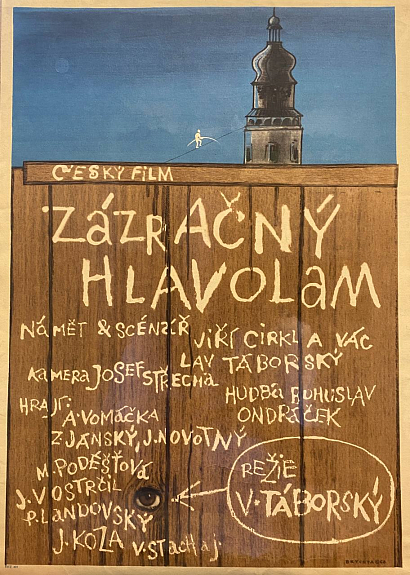 ČESKÝ FILM
ZÁZRAČNÝ
HLAVOLAM
NÁMĚT & SCÉNÁŘ
JIŘÍ CIRKL A VÁC
LAV TÁBORSKÝ
KAMERA JOSEF STŘECHA
HUDBA BOHUSLAV
ONDRÁČEK
HRAJÍ:
A. VOMÁČKA
Z. JÁNSKÝ, J. NOVOTNÝ
M. PODĚŠŤOVÁ
J. VOSTRČIL
P. LANDOVSKÝ
J. KOZA V. STACH aj.
REŽIE
V. TÁBORSKÝ